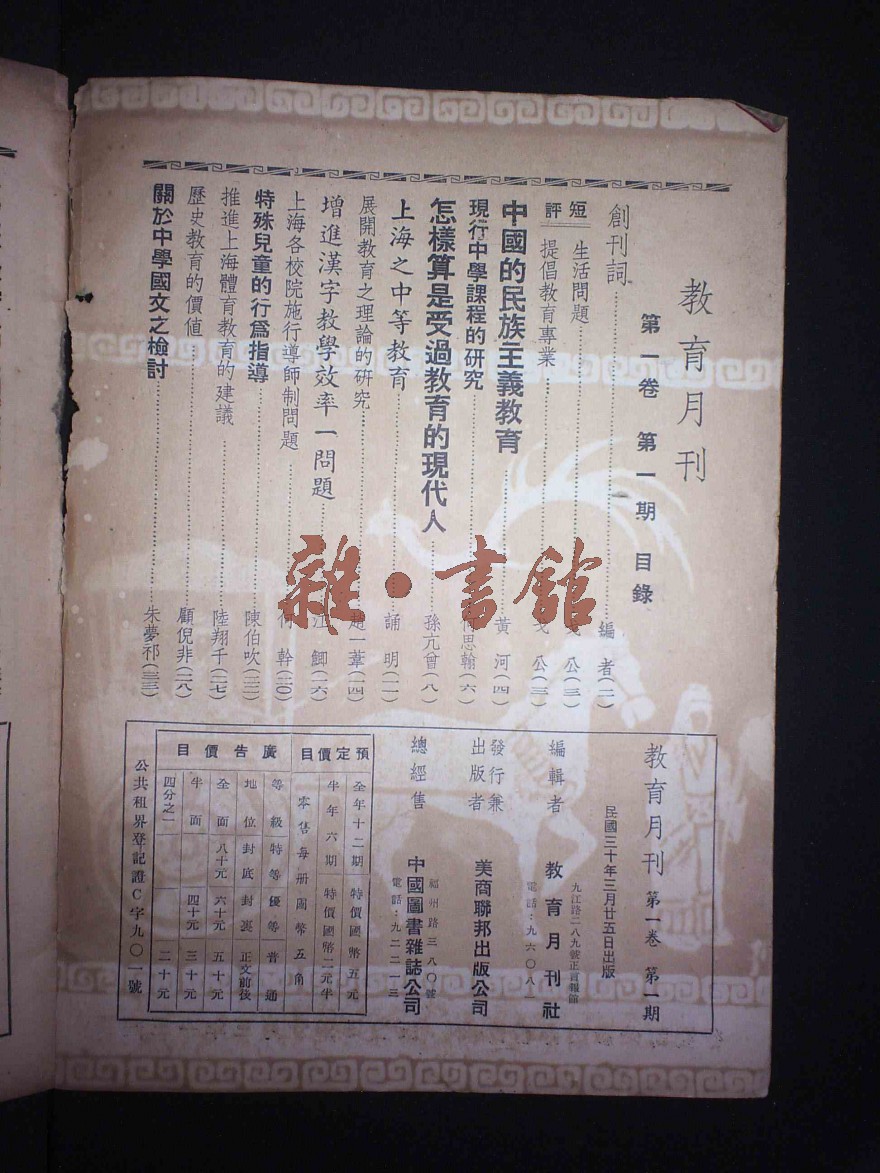 教育月刊
第一卷 第一期 目錄
創刊詞 編者(二)
短評
生活問題 公(三)
提倡教育專業 戈公(三)
中國的民族主義教育 黃河(四)
現行中學課程的研究 何思翰(六)
怎樣算是受過教育的現代人 孫亢曾(八)
上海之中等教育 誦明(一一)
展開教育之理論的研究 趙一葦(一四)
增進漢字教學效率一問題 江鯽(一六)
上海各校院施行導師制問題 何幹(二〇)
特殊兒童的行爲指導 陳伯吹(二二)
推進上海體育教育的建議 陸翔千(二七)
歷史教育的價值 顧倪非(二八)
關於中學國文之檢討 朱夢祁(三三)
雜·書館
教育月刊 第一卷 第一期
民國三十年三月廿五日出版
編輯者 教育月刊社
九江路二八九號正言報館
電話:九六〇八一
發行兼出版者 美商聯邦出版公司
總經售 中國圖書雜誌公司
福州路三八〇號
電話:九二二一三
預定價目
全年十二期 特價國幣五元
半年六期 特價國幣二元半
零售每册國幣五角
廣告價目
等級 特等 優等 普通
地位 封底 封裏 正文前後
全面 八十元 六十元 五十元
半面 四十元 三十元
四分之一 二十元
公共租界登記證C字九〇一號